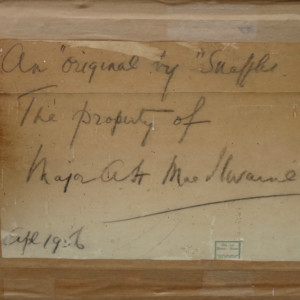 An "original" by "Snaffles
The property of
Major A H MacIlwaine